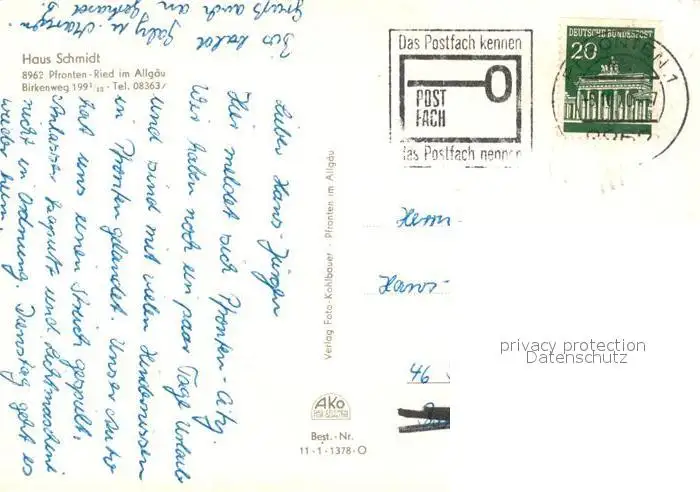 Haus Schmidt
8962 Pfronten-Ried im Allgäu
Birkenweg 199 1/10 · Tel. 08363/
Lieber Hans-Jürgen
Hier meldet sich Pfronten-City.
Wir haben noch ein paar Tage Urlaub
und sind mit vielen Hindernissen
in Pfronten gelandet. Unser Auto
hat uns einen Streich gespielt.
Anlasser kaputt und Lichtmaschine
nicht in Ordnung. Dienstag geht es
wieder heim.
Bis bald
Gruß auch an
Verlag Foto-Kohlbauer · Pfronten im Allgäu
AKO
Best.-Nr.
11-1-1378-O
Das Postfach kennen
POST
FACH
das Postfach nennen
DEUTSCHE BUNDESPOST
20
PFRONTEN 1
8962
Herrn
Hans-
46
privacy protection
Datenschutz